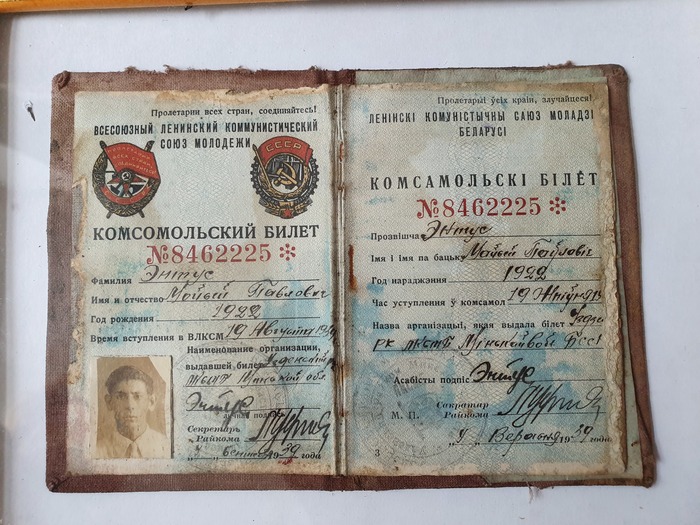 Пролетарии всех стран, соединяйтесь!
ВСЕСОЮЗНЫЙ ЛЕНИНСКИЙ КОММУНИСТИЧЕСКИЙ
СОЮЗ МОЛОДЕЖИ
СССР
КОМСОМОЛЬСКИЙ БИЛЕТ
№8462225 *
Фамилия Энтус
Имя и отчество Павлович
Год рождения 1922
Время вступления в ВЛКСМ 19 Августа
Наименование организации,
выдавшей билет Узденский
Минской обл.
Энтус
подпись
Секретарь
Райкома
1939 года
Пролетарыі ўсіх краін, злучайцеся!
ЛЕНІНСКІ КОМУНІСТЫЧНЫ САЮЗ МОЛАДЗІ
БЕЛАРУСІ
КОМСАМОЛЬСКІ БІЛЁТ
№8462225 *
Прозвішча Энтус
Імя і імя па бацьку Паўлавіч
Год нараджэння 1922
Час уступлення ў комсамол 19 Жніўня
Назва арганізацыі, якая выдала білет
РК Мінскай вобл БССР
Асабісты подпіс Энтус
Сакратар
М. П. Райкома
Верасня 1939 года
3